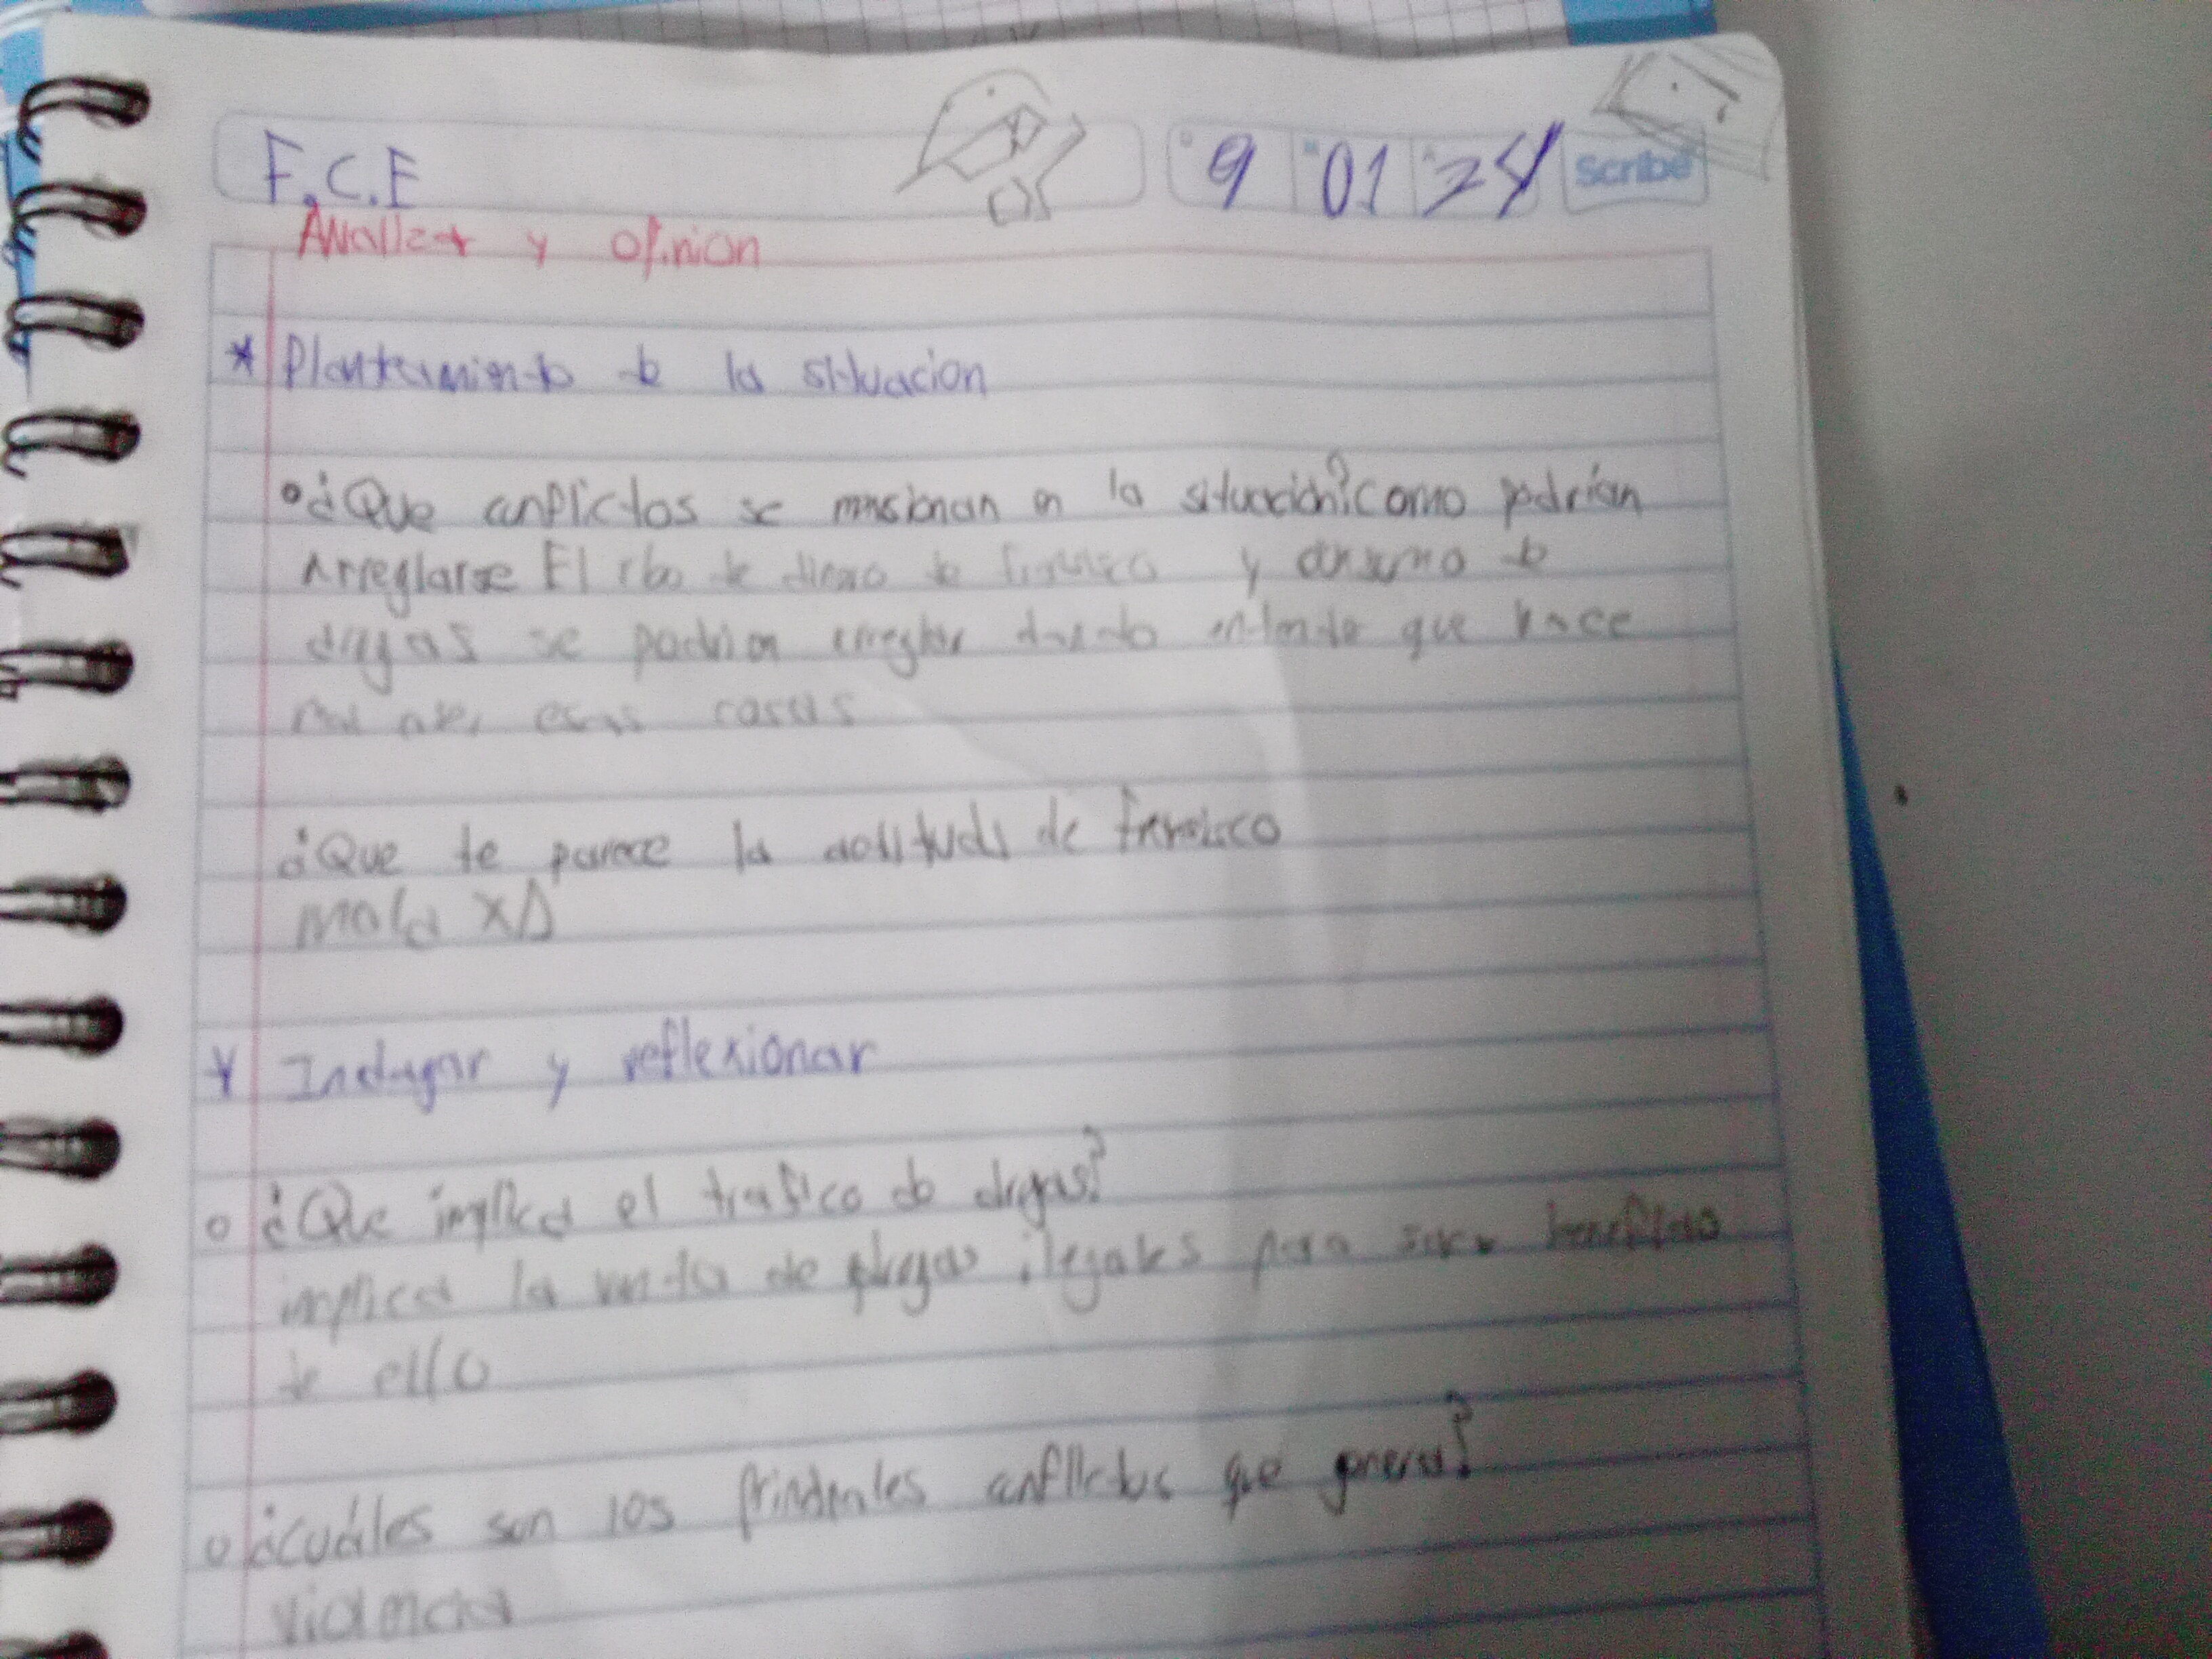 F.C.E
9 01 24
Scribe
Analizar y opinion
* Planteamiento de la situacion
¿Que conflictos se mensionan en la situación? como podrían
Arreglarse El robo de dinero de y consumo de
drogas se podrian arreglar dando entender que hace
mal aser esas cosas
¿Que te parece la actitud de
mala XD
* Indagar y reflexionar
¿Que implica el trafico de drogas?
implica la venta de drogas ilegales para sacar beneficio
de ello
¿cuáles son los principales conflictos que genera?
violencia